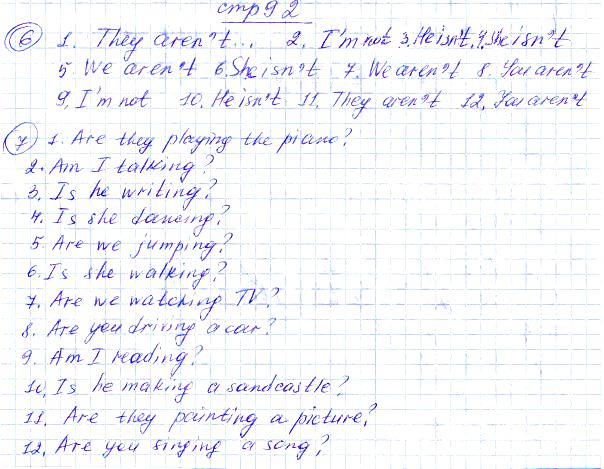 стр 92
6 1. They aren't... 2. I'm not 3. He isn't 4. She isn't
5. We aren't 6. She isn't 7. We aren't 8. You aren't
9. I'm not 10. He isn't 11. They aren't 12. You aren't
7 1. Are they playing the piano?
2. Am I talking?
3. Is he writing?
4. Is she dancing?
5. Are we jumping?
6. Is she walking?
7. Are we watching TV?
8. Are you driving a car?
9. Am I reading?
10. Is he making a sandcastle?
11. Are they painting a picture?
12. Are you singing a song?